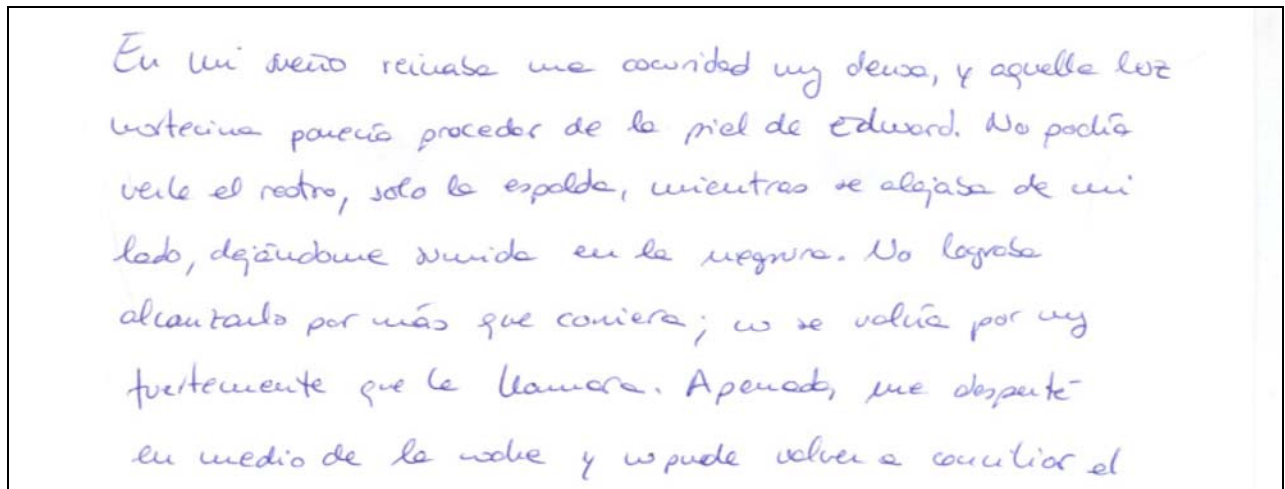 En mi sueño reinaba una oscuridad muy densa, y aquella luz
mortecina parecía proceder de la piel de Edward. No podía
verle el rostro, solo la espalda, mientras se alejaba de mi
lado, dejándome sumida en la negrura. No lograba
alcanzarlo por más que corriera; no se volvía por muy
fuertemente que le llamara. Apenada, me desperté
en medio de la noche y no pude volver a conciliar el